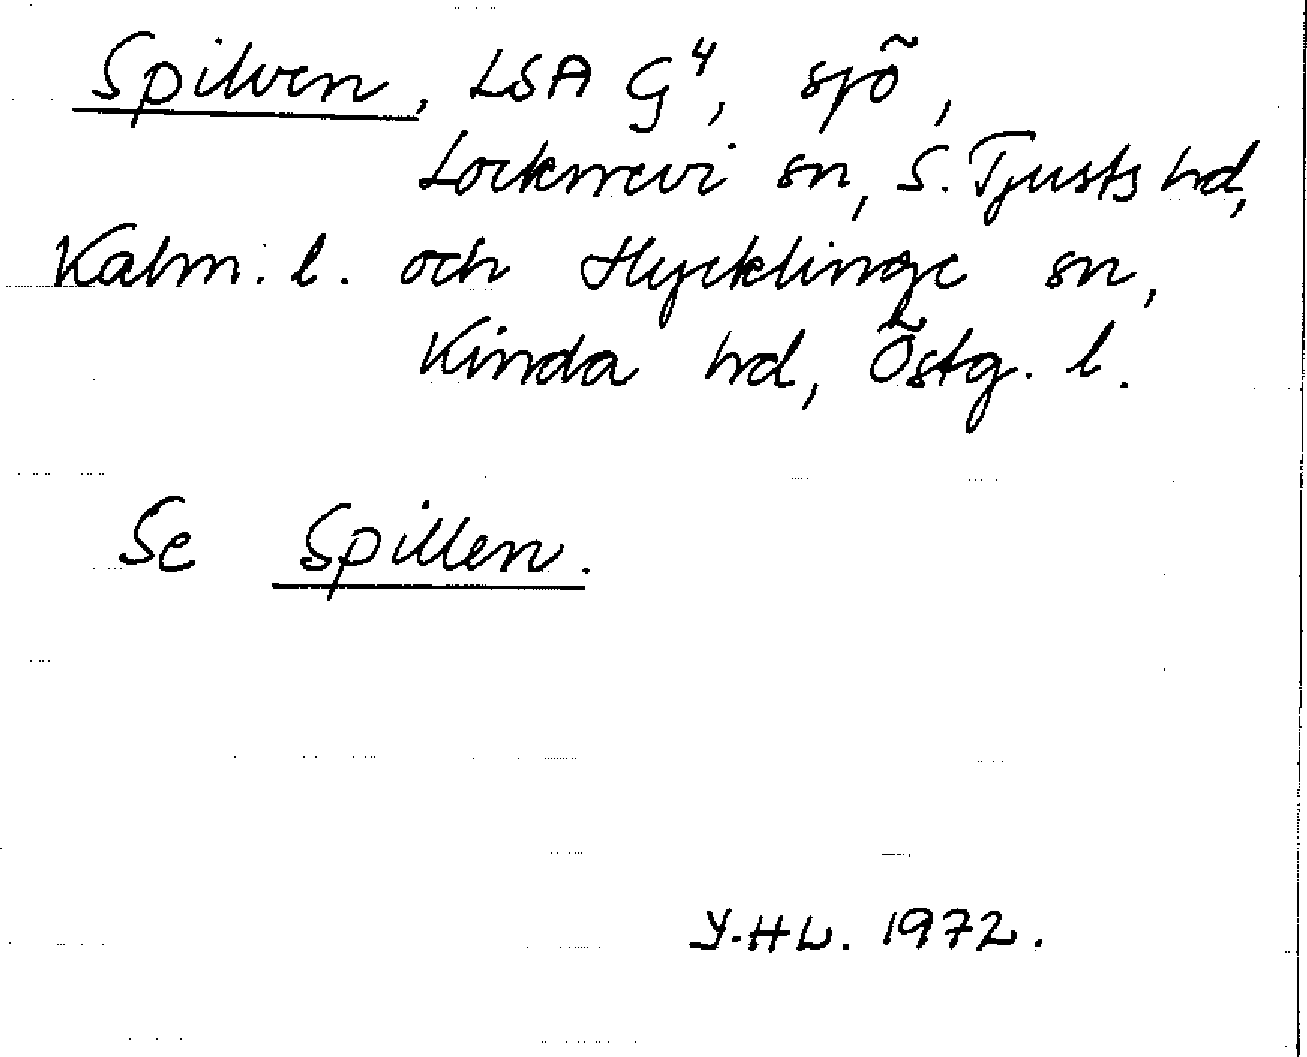 Spilven, LSA G⁴, sjö,
Locknevi sn, S. Tjusts hd,
Kalm. l. och Hycklinge sn,
Kinda hd, Östg. l.
Se Spillen.
Y.HL. 1972.